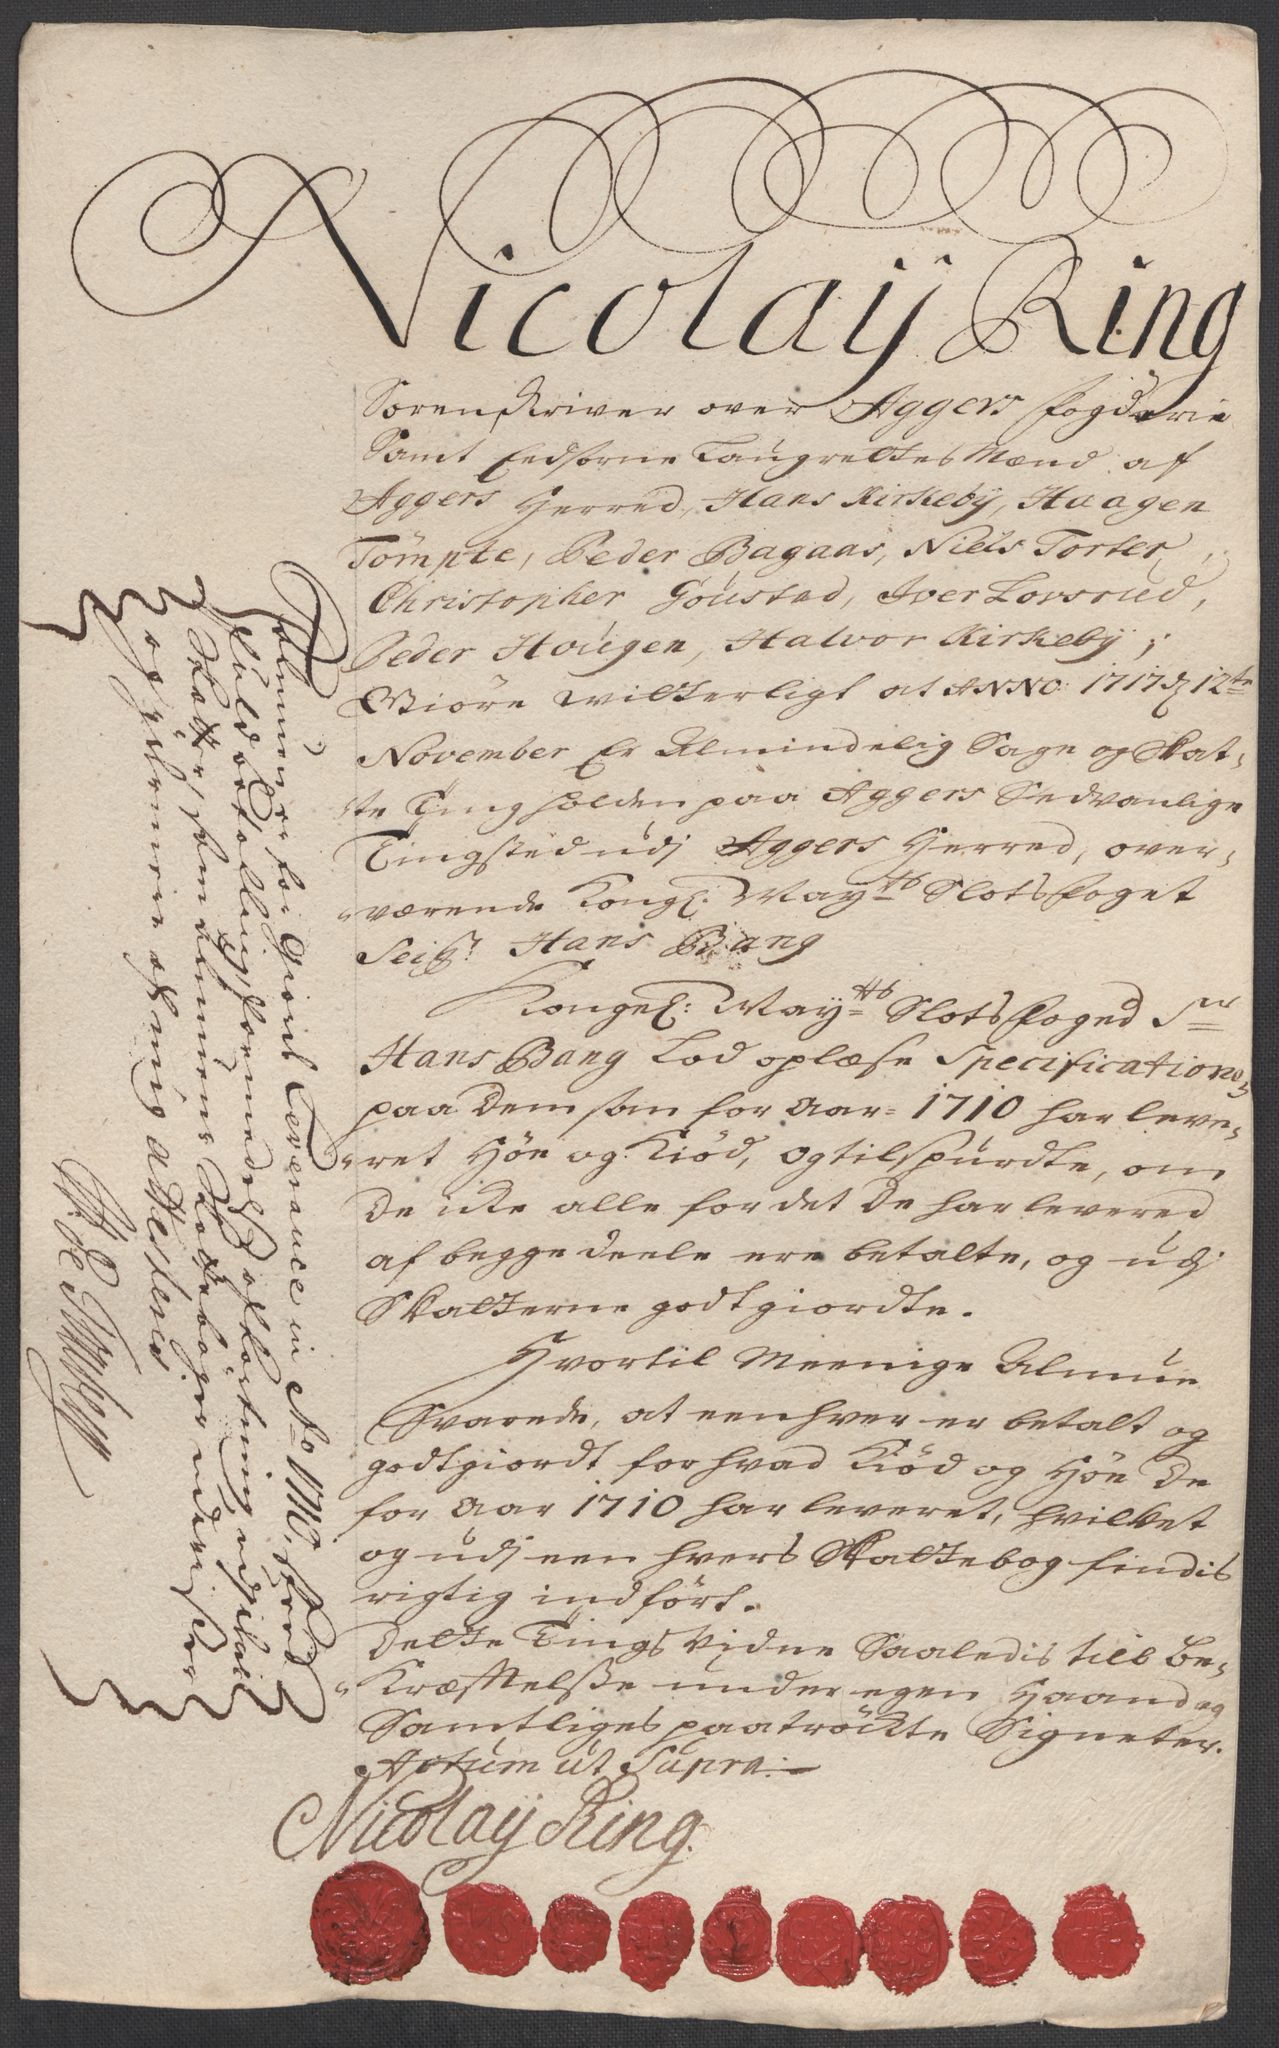 Nicolaÿ Ring
Sorenskriver over Aggers fogderie
Samt Eedsorne Laugrettes Mænd af
Aggers Herred, Hans Kirkebÿ, Haagen
Tömpte, Peder Bagaas, Niels Torser,
Christopher Goústad, Iver Lovsrud,
Peder Hougen, Halvor Kirkebÿ;
Giöre witterligt at ANNO 1717 d 12te
November Er Almindelig Sage og Skat-
te Ting holden paa Aggers Sedvanlige
Tingsted udj Aggers Herred, over-
værende Kongl: Mayts Slotsfoget
Seigr Hans Bang
Kongel: Mayts Slotsfoged Sr
Hans Bang Lod oplæse Specification
paa dem som for Aar 1710 har leve-
ret Höe og Kiöd, og tilspurdte, om
de icke alle for det de har levered
af begge deele ere betalte, og udj
Skatterne godtgiordte.
Hvortil Meenige Almue
Svarede, at een hver er betalt og
godtgiordt for hvad Kiöd og Höe de
for Aar 1710 har leveret, hvilket
og udj een hvers Skattebog findis
rigtig indfört.
Dette Tings Vidne Saaledis till Be-
Kræfftelsse under egen Haand og
Samtliges paatröckte Signeter.
Actum ut Supra.
Nicolaÿ Ring.
Almuen er for giort Leverance in Ao 1710,